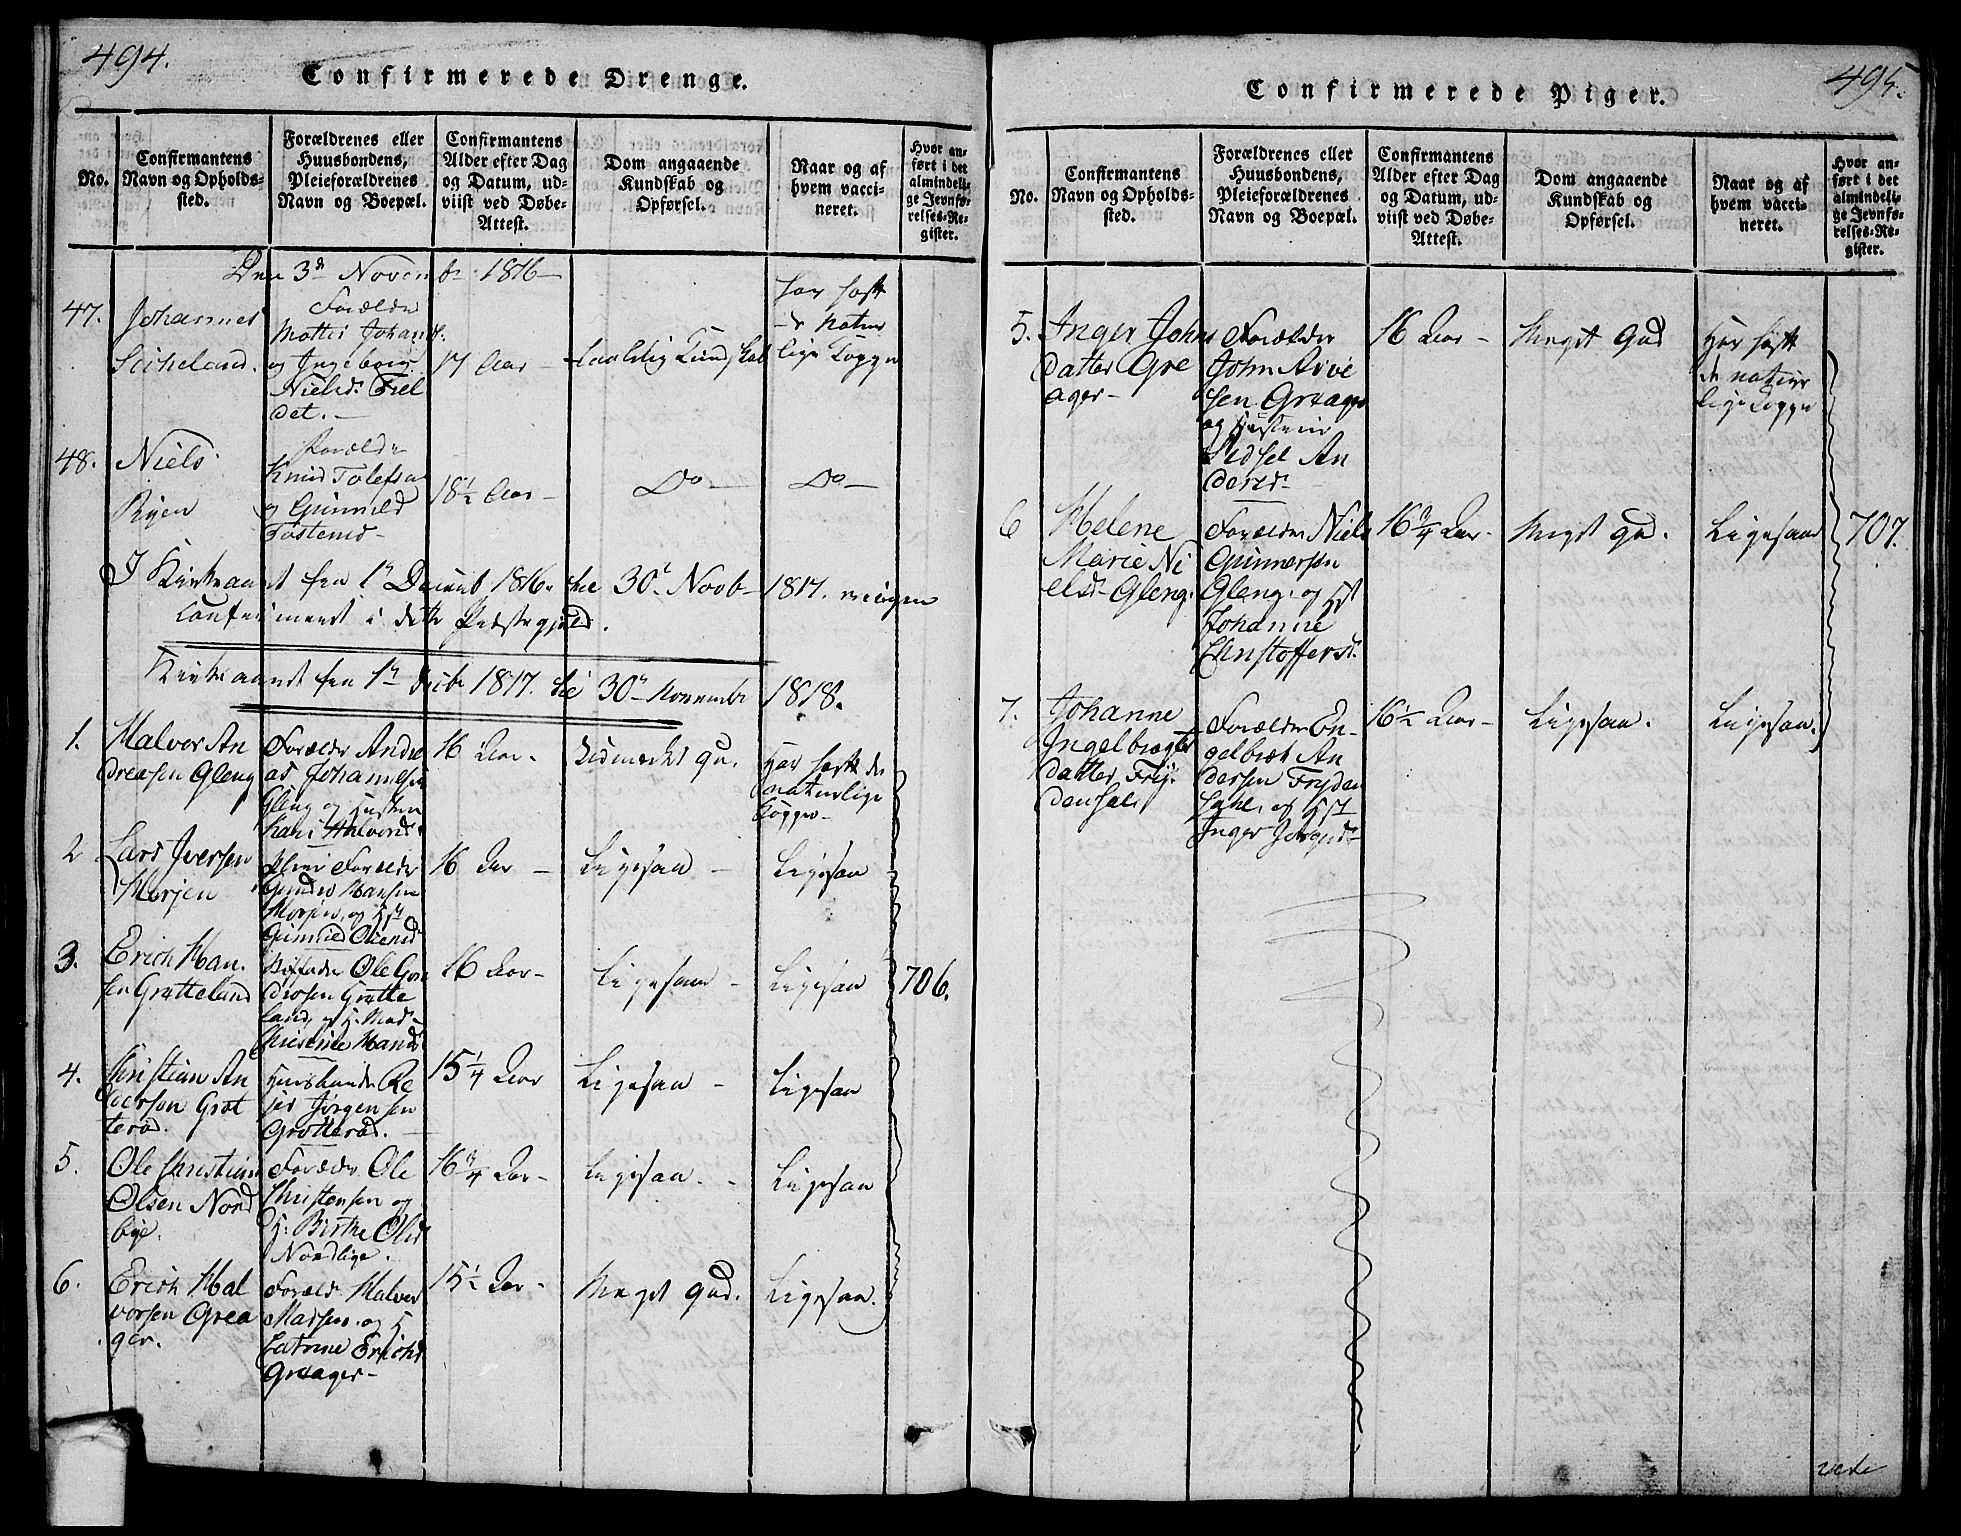 494.
Confirmerede Drenge.
No.
Confirmantens
Navn og Opholds-
sted.
Forældrenes eller
Huusbondens,
Pleieforældrenes
Navn og Boepæl.
Confirmantens
Alder efter Dag
og Datum, ud-
viist ved Døbe-
Attest.
Dom angaaende
Kundskab og
Opførsel.
Naar og af
hvem vacci-
neret.
Hvor an-
ført i det
almindeli-
ge Jevnfø-
relses-Re-
gister.
Den 3d Novembr 1816
47.
Johannes
Forældre
Mottis Johans.
og Ingeborg
Niels. Fiel
det.
17 Aar
Taalelig Kundskab
har haft
de natur
lige Kopper
48.
Niels
Ryen
Forældre
Knud Tolefsen
og Gunnild
Tostensd
18½ Aar
Do
Do
I Kirkeaaret fra 1n Decemb 1816 til 30t Novb 1817. er ingen
confirmeret i dette Præstegjeld.
Kirkeaaret fra 1n Decbr 1817. til 30n Novembr 1818.
1.
Halvor An
dreasen Gleng
Forældre Andre
as Johannesen
Gleng og Hustrue
Kari Halvorsd
16 Aar
Udmærket god.
Har haft de
naturlige
Kopper
2
Lars Iversen
Horjen
Pleie Forældre
Gunder Hansen
Horjen, og Hst
Gunnild Olensd
16 Aar
Ligesaa
Ligesaa
3.
Erich Han
sen Grætteland
Ole Gun
dersen Grætte
land, og H. Mad
Christine Hansd
16 Aar
Ligesaa
Ligesaa
706.
4.
Christian An
dersen Grøt
terød.
Huusbonde Re
jer Jørgensen
Grøtterød.
15¼ Aar
Ligesaa
Ligesaa
5.
Ole Christian
Olsen Nord
bye.
Forældre Ole
Christensen og
H. Birthe Olsd
Nordbye.
16¾ Aar
Ligesaa
Ligesaa
6.
Erich Hal
vorsen Grea
ger.
Foræld. Halvor
Madsen og H
Catrine Erichsd
Greager
15½ Aar
Meget God.
Ligesaa.
495.
Confirmerede Piger.
No.
Confirmantens
Navn og Opholds-
sted.
Forældrenes eller
Huusbondens,
Pleieforældrenes
Navn og Boepæl.
Confirmantens
Alder efter Dag
og Datum, ud-
viist ved Døbe-
Attest.
Dom angaaende
Kundskab og
Opførsel.
Naar og af
hvem vacci-
neret.
Hvor an-
ført i det
almindeli-
ge Jevnfø-
relses-Re-
gister.
5.
Inger Johns
datter Gre
ager
Forældre
John Arve
sen Greager
og Hustrue
Sidsel An
dersd
16 Aar
Meget God
Har haft
de natur
lige Kopper
6
Helene
Marie Ni
elsd Gleng.
Forældre Niels
Gunnersen
Gleng, og Hst
Johanne
Christoffersd.
16¾ Aar
Meget god.
Ligesaa
707.
7.
Johanne
Ingelbregts
datter Fry
densal.
Forældre En
gelbret An
dersen Fryden
sahl, og Hst
Inger Jørgensd
16½ Aar
Ligesaa.
Ligesaa.